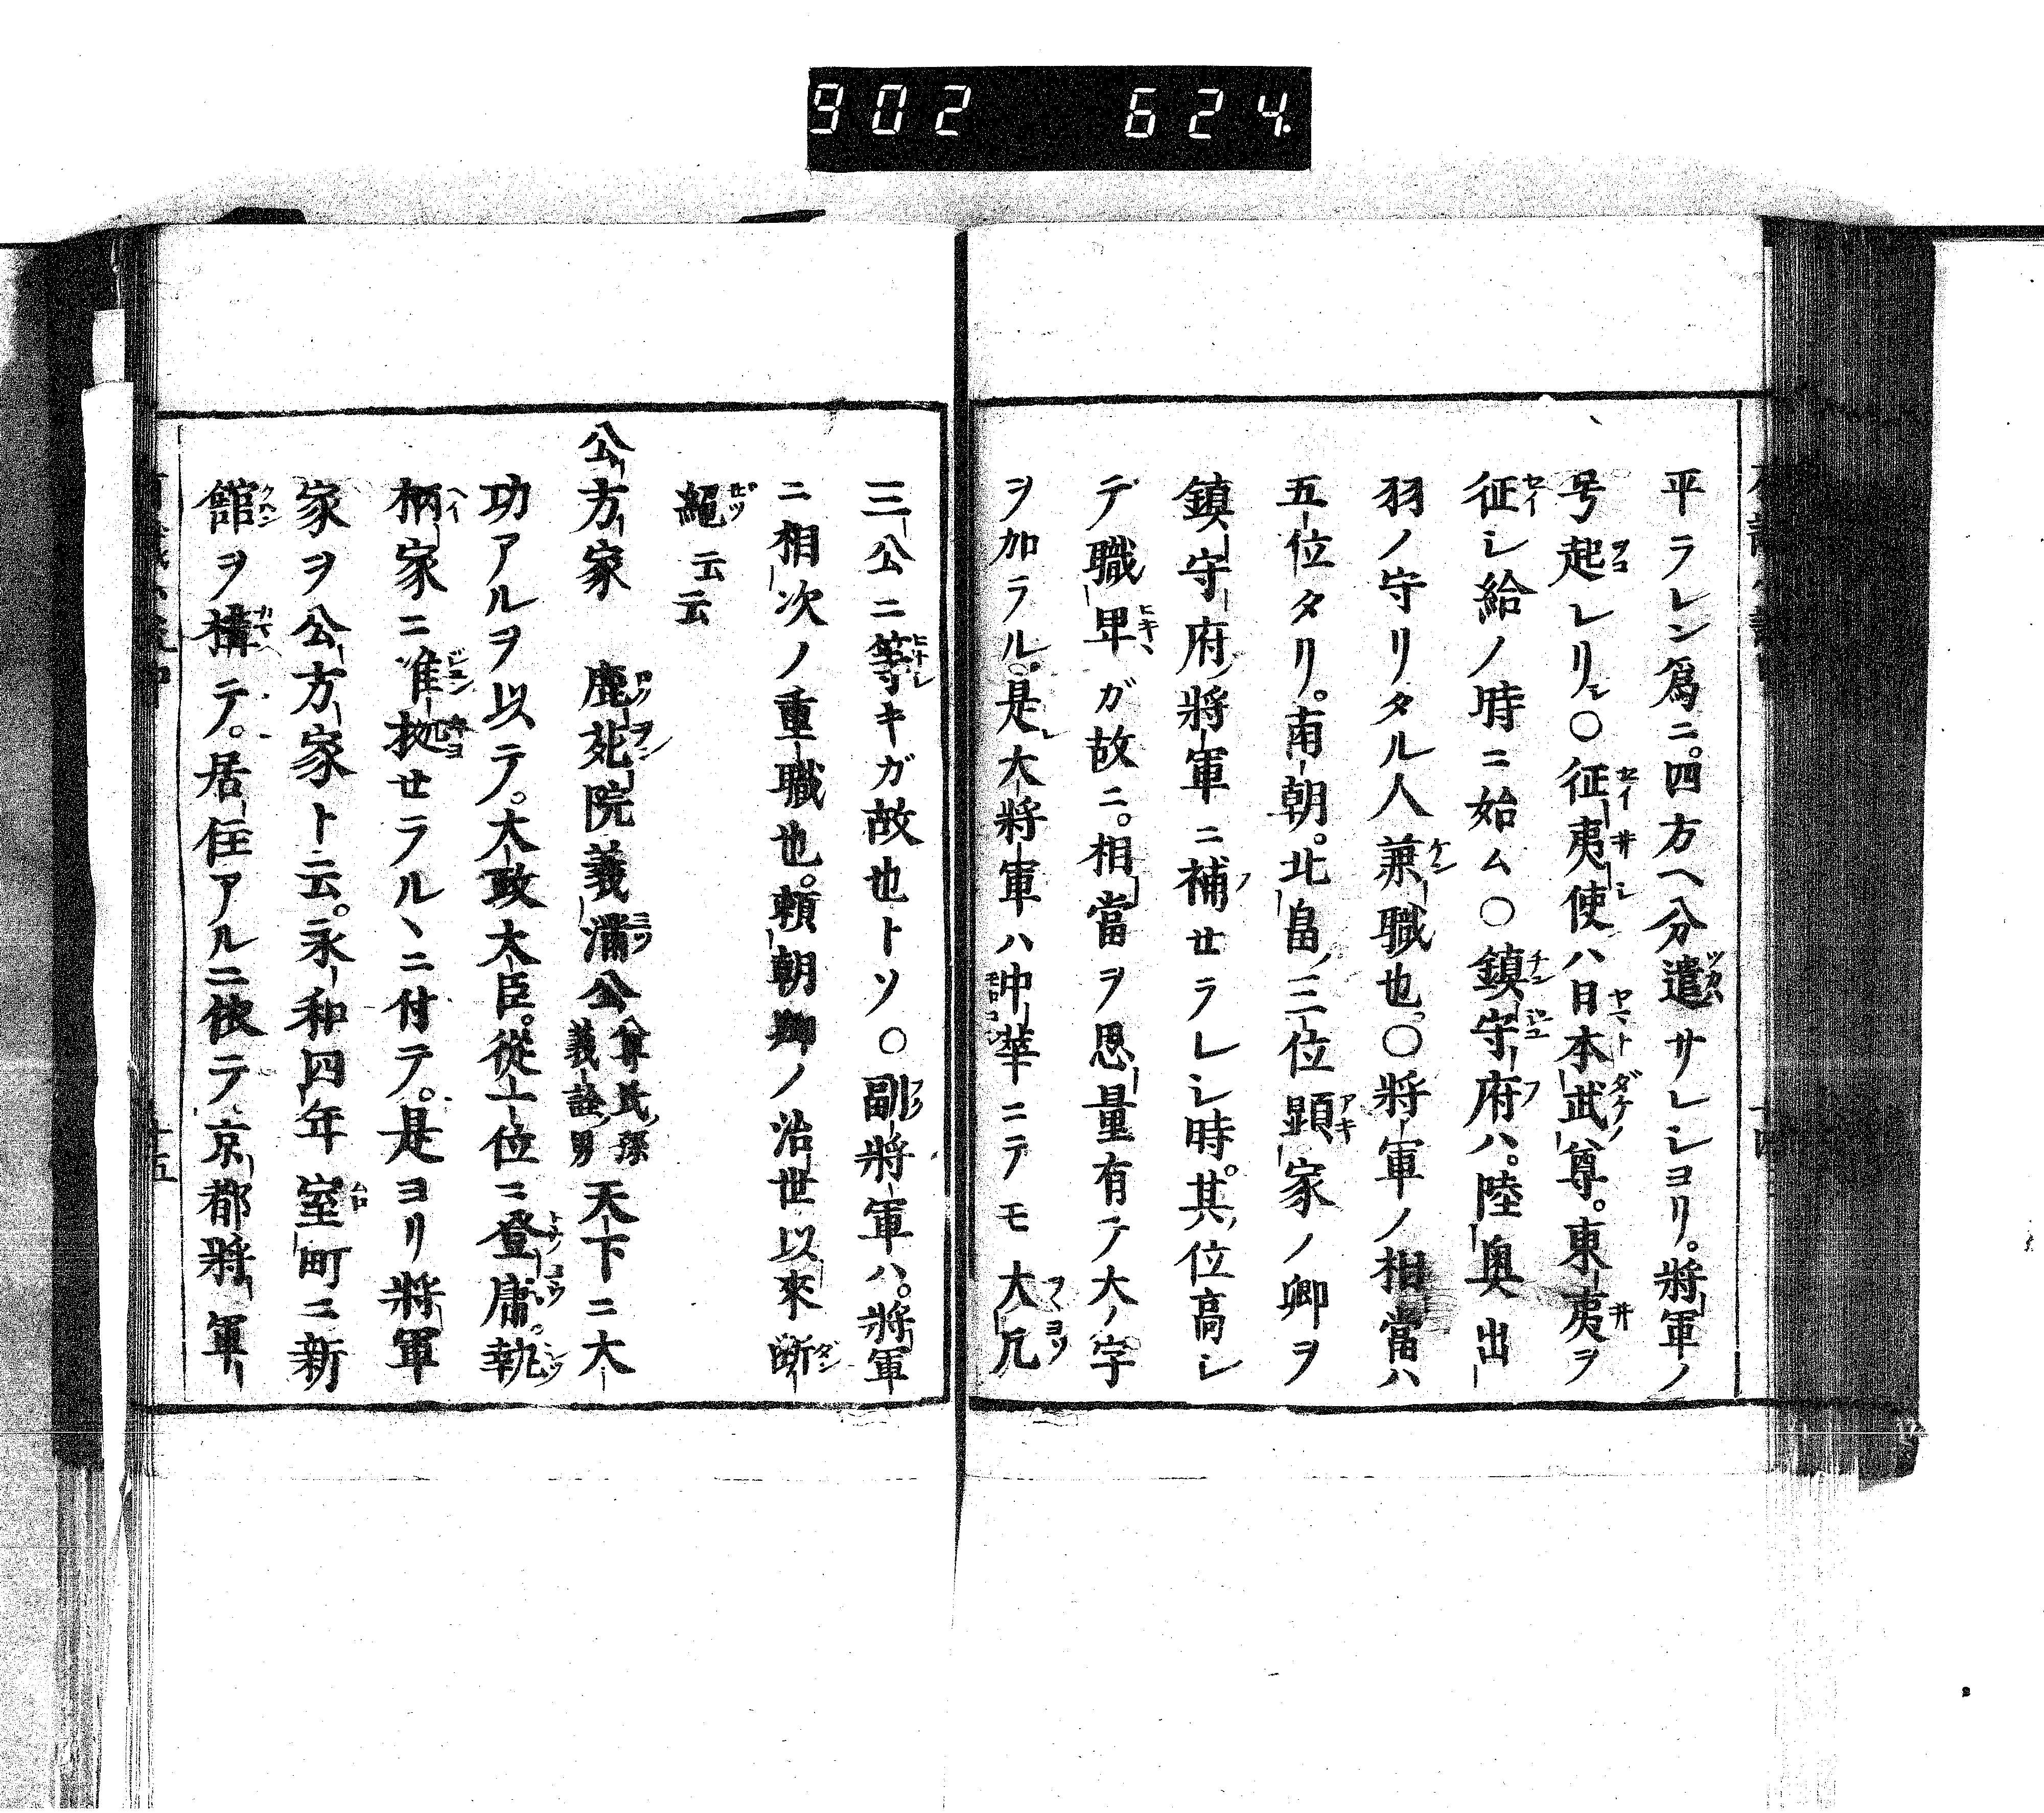 902 624
平ラレン爲ニ。四方ヘ分遣サレシヨリ。將軍ノ
号起レリ〇征夷使ハ日本武尊。東夷ヲ
征シ給ノ時ニ始ム〇鎮守府ハ。陸奥出
羽ノ守リタル人兼職也。〇將軍ノ相當ハ
五位タリ。南朝。北畠三位顕家ノ卿ヲ
鎮守府將軍ニ補セラレシ時。其位高シ
デ職卑ガ故ニ。相當ヲ恩量有テ大ノ字
ヲ加ラル。是大將軍ハ沖華ニテモ大凡
三公ニ等キガ故也トソ。〇副將軍ハ。將軍
ニ相次ノ重職也。頼朝卿ノ治世以來断
繩云云
公方家 鹿苑院義滿公尊氏孫義詮男天下ニ大
功アルヲ以テ。太政大臣。從上位ニ登庸。執
柄家ニ准拠セラルヽニ付テ。是ヨリ將軍
家ヲ公方家ト云。永和四年室町ニ新
館ヲ構テ。居住アルニ依テ京都將軍